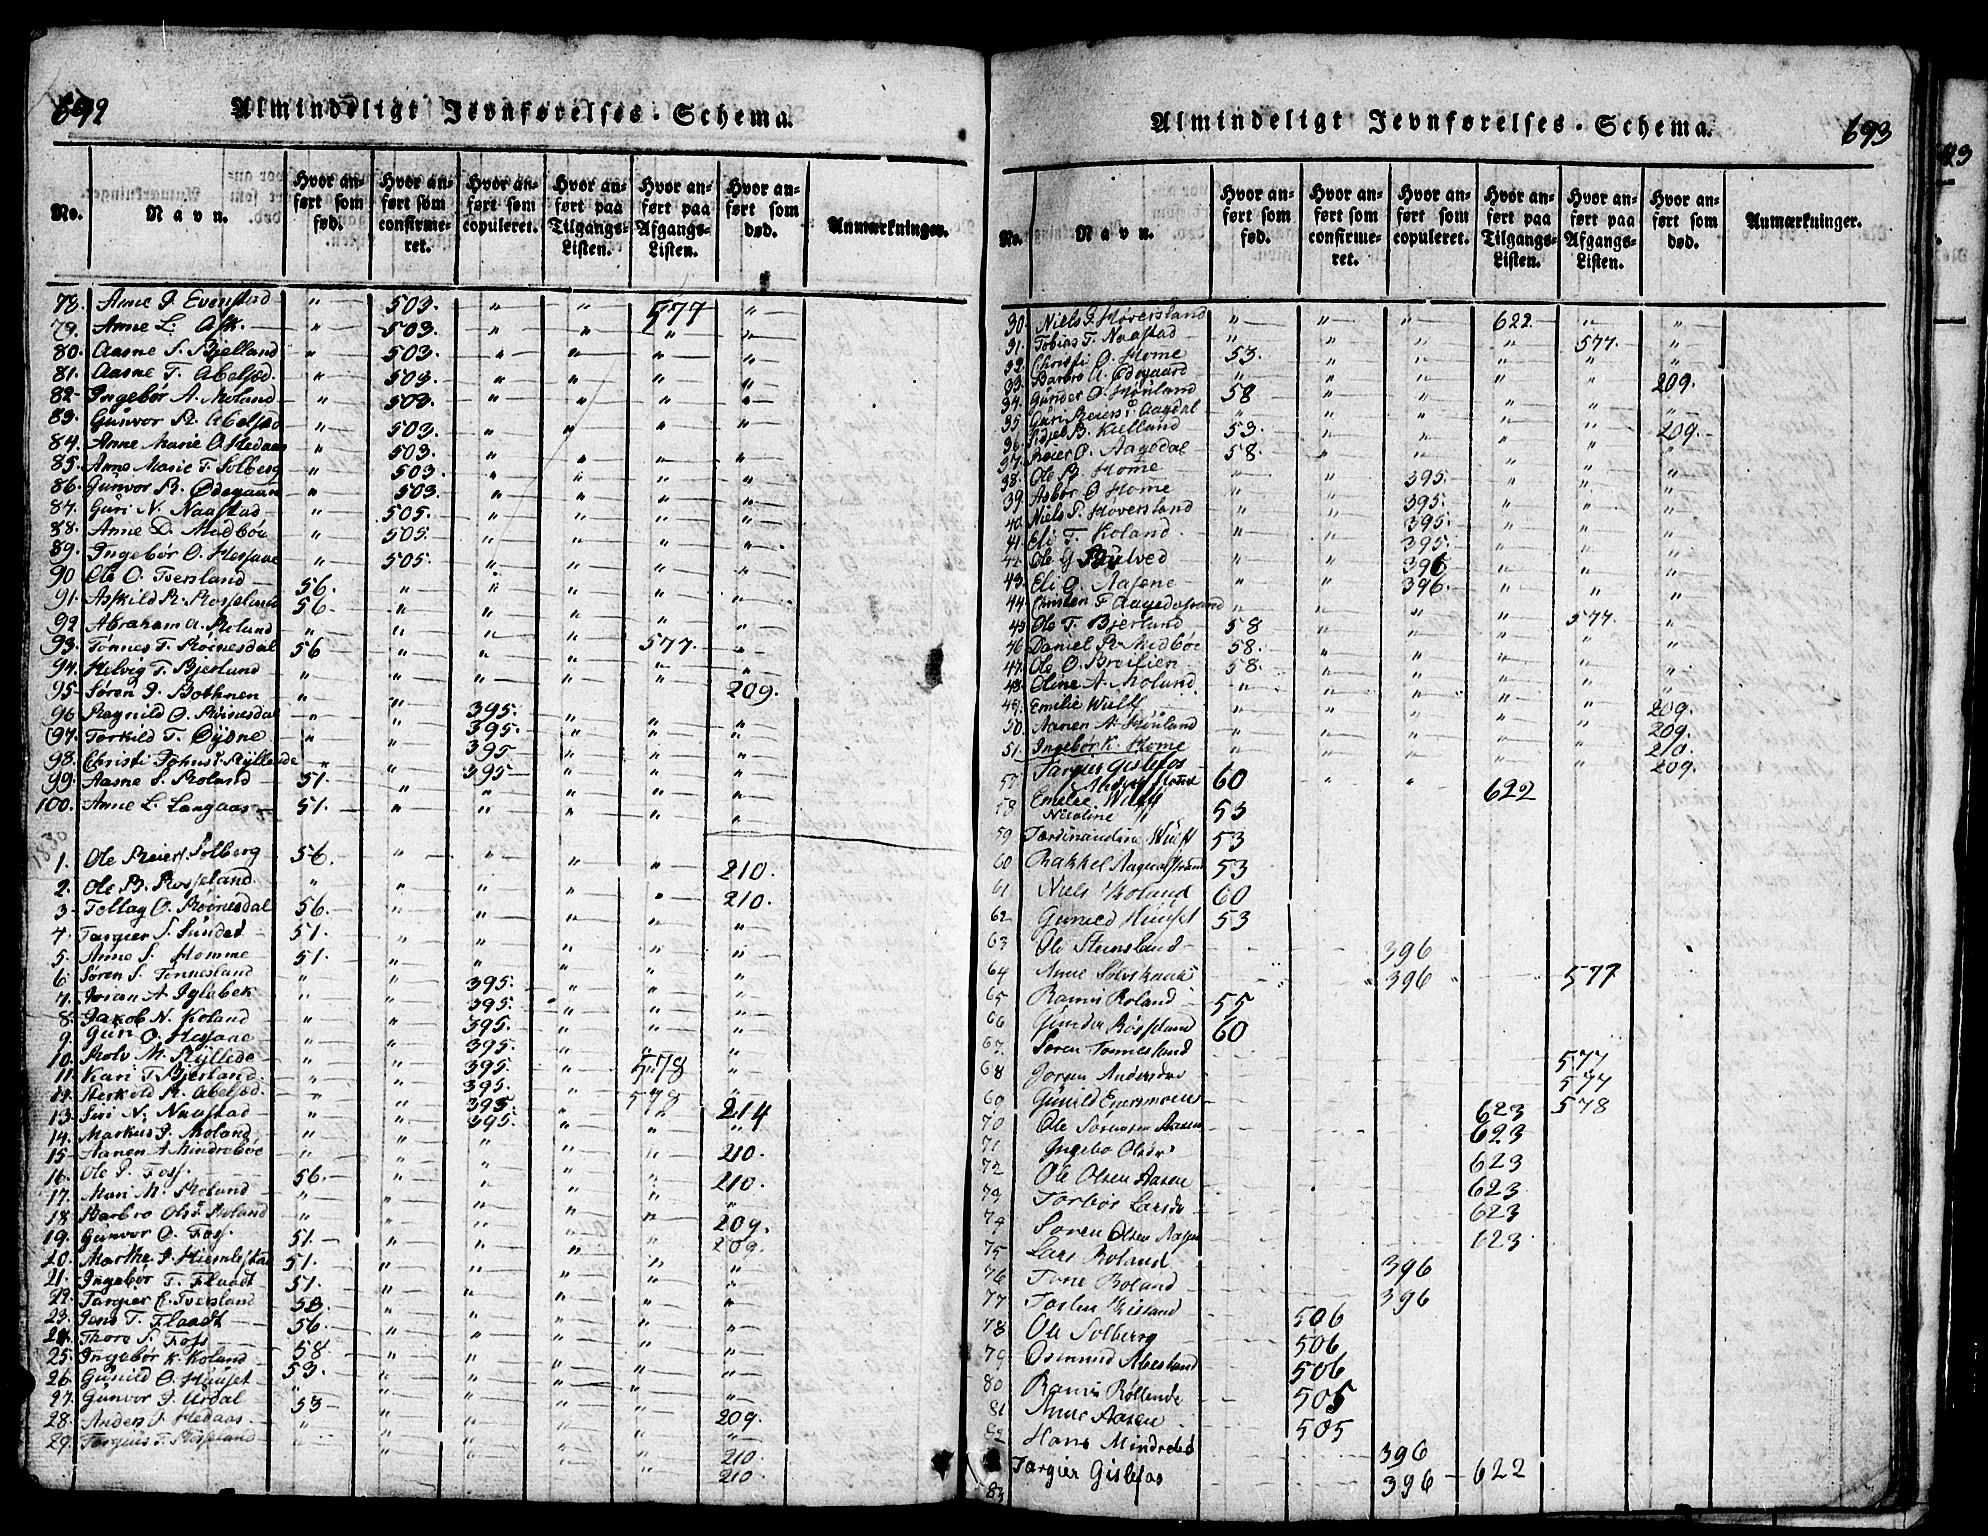 692 Almindeligt Jevnførelses-Schema.
No. Navn. Hvor anført som fød. Hvor anført som confirmeret. Hvor anført som copuleret. Hvor anført paa Tilgangs-Listen. Hvor anført paa Afgangs-Listen. Hvor anført som død. Anmærkninger.
78. Anne J. Evenstad " 503. " " 577 "
79. Anne L. Ask " 503. " " " "
80. Aasne S. Bjelland " 503. " " " "
81. Aasne T. Abelsæd. " 503. " " " "
82 Ingebør A. Moland " 503. " " " "
83. Gunvor R. Abelsæd " 503. " " " "
84. Anne Marie O. Hedaas " 503. " " " "
85. Anne Marie T. Solberg " 503. " " " "
86. Gunvor R. Ødegaan " 503. " " " "
87. Guri N. Naastad " 505. " " " "
88. Anne D. Midbøe " 505. " " " "
89. Ingebør O. " 505. " " " "
90 Ole O. Tversland 56. " " " " "
91. Askild R. Rosseland 56. " " " " "
92 Abraham A. Roland " " " " " "
93. Tønnes T. Røinesdal 56 " " " 577. "
94. Helvig T. Bjerland " " " " " "
95 Søren J. Bothnen " " " " " 209.
96 Ragnild O. Røinesdal " " 395. " " "
97. Torkild T. Øydne " " 395. " " "
98. Christi Johnsd. Ryllende " " 395 " " "
99. Aasne S. Roland 51. " 395 " " "
100. Anne L. Langaas 51. " " " " "
1830
1. Ole Reiers. Solberg 56. " " " " 210.
2. Ole B. Rosseland " " " " " 210.
3 Tollag O. Røinesdal 56. " " " " "
4. Targier S. Sundet 51. " " " " "
5. Anne S. Homme 51. " " " " "
6 Søren S. Tonnesland " " 395. " " "
7. A. Iglebek " " 395. " " "
8. Jakob N. Koland " " 395. " " "
9. Guri O. " " 395. " " "
10. Rolv M. Ryllede " " 395. " 578 "
11. Kari T. Bjerland " " 395. " 578 214
12. R. Abelsæd " " 395
13. Siri N. Naastad " " 395. " " "
14. Markus J. Moland " " " " " 210.
15 Aanen A. Mindrebøe " " " " " 210.
16. Ole P. Foss. 56. " " " " "
17. Mari M. Roland " " " " " "
18 Barbro Olsd. Roland " " " " " 209.
19. Gunvor O. Foss. 51. " " " " 209.
20. Marthe J. 51. " " " " "
21. Ingebor T. Flaadt 51. " " " " "
22. Targier E. Tversland 53. " " " " "
23. Jens T. Flaadt 56. " " " " "
24. Thore S. Foss 58 " " " " "
25. Ingebør K. Koland 53. " " " " "
26. Gunild O. Huuset " " " " " "
27. Gunvor J. Urdal 53 " " " " 209.
28. Anders O. Hedaas " " " " " 210.
29. T. Rosseland " " " " " 210.
Almindeligt Jevnførelses-Schema. 693
No. Navn. Hvor anført som fød. Hvor anført som confirmeret. Hvor anført som copuleret. Hvor anført paa Tilgangs-Listen. Hvor anført paa Afgangs-Listen. Hvor anført som død. Anmærkninger.
30. Niels G. Hoversland " " " 622. " "
31. Tobias T. Naastad " " " " 577. "
32. Christi O. Home 53. " " " " "
33. Barbro A. Ødegaard " " " " " 209.
34. Gunder O. Hønland 58 " " " " "
35 Guri Reiersd. Aagdal " " " " " 209.
36. B. Kielland 53. " " " " "
37. Reier O. Aagedal 58. " " " " "
38. Ole B. Home " " 395. " " "
39. Asbør O. Home " " 395. " " "
40. Niels P. Hoversland " " 395. " " "
41. Eli T. Koland " " 395. " " "
42. Ole G. " " 396 " " "
43. Eli O. Aasene " " 396. " " "
44. Christen F. " " " " 577. "
45. Ole T. Bjerland 58 " " " " "
46 Daniel R. Midbøe 58. " " " " "
47. Ole O. Breilien 58. " " " " "
48. Oline A. Moland " " " " " 209.
49. Emilie Wulff " " " " " 209.
50. Aanen A. Hønland " " " " " 210.
51. Ingebør K. Home " " " " " 209.
57 Targier Gislefos 60 " " 622
58 Emelie Wulff 53
Nicoline "
59 Ferdinandine Wulff 53
60 Rakkel 53
61 Niels Roland 60
62 Gunild Huuset 53
63 Ole Stensland 396
64 Anne 396 577
65 Ranni Roland 55
66 Gunder Rosseland 60
67 Soren Tonnesland 577
68 Joren 577
69 Gunild 623 578
70 Ole Sørensen Aasen 623
71 Ingebo Olsd. 623
72 Ole Olsen Aasen 623
73 Torbor Larsd. 623
74 Soren Olsen Aasen 623
75 Lars Roland 396
76 Tone Roland 396
77 506
78 Ole Solberg 506
79 Osmund 506
80 Ranni Røllende 505
81 Anne Aasen 505
82 Hans Mindrebø 396
83 Targier Gislefos 396 622